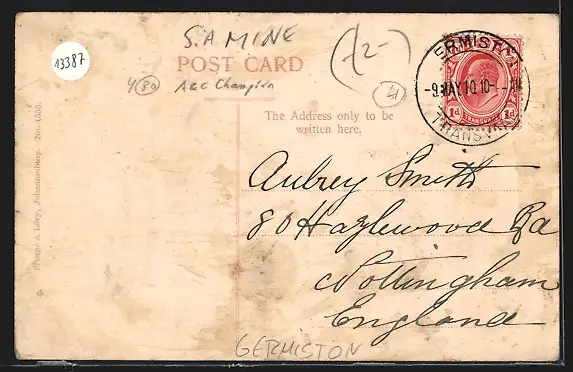 S.A MINE
(-/2-)
13387
POST CARD
4 (80) A&C Champion
41
The Address only to be
written here.
ERMISTON
-9 MAY 10.10-
TRANSVAAL
1d TRANSVAAL 1d
Aubrey Smith
80 Hazlewood Rd
Nottingham
England
GERMISTON
Johannesburg. No. 4555.